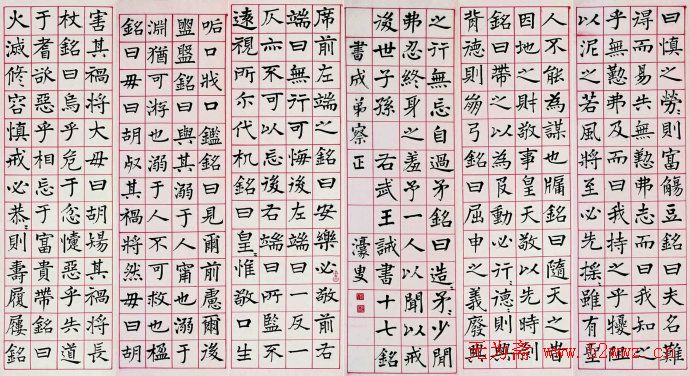 席前左端之銘曰安樂必敬前右
端曰無行可悔後左端曰一反一
仄亦不可以忘後右端曰所監不
遠視所尔代机銘曰皇〻惟敬口生
㖃口戕口鑑銘曰見爾前慮爾後
盥盤銘曰與其溺于人甯也溺于
淵猶可游也溺于人不可救也楹
銘曰毋曰胡殘其禍將然毋曰胡
害其禍將大毋曰胡傷其禍將長
杖銘曰烏乎危于忿懥惡乎失道
于耆欲惡乎相忘于富貴帶銘曰
火滅修容慎戒必恭〻則壽履屨銘
曰慎之勞〻則富觴豆銘曰夫名難
淂而易失無懃弗志而曰我知之
乎無懃弗及而曰我持之乎擾阻
以泥之若風將至必先搖〻雖有聖
人不能為謀也牖銘曰隨天之旹
因地之財敬事皇天敬以先時劍
銘曰帶之以為𠬝動必行〻德〻則興
背德則崩弓銘曰屈申之義廢興
之行無忘自過矛銘曰造〻矛〻少閒
弗忍終身之羞予一人以聞以戒
後世子孫 右武王誡書十七銘
書成弟察正 濠叟